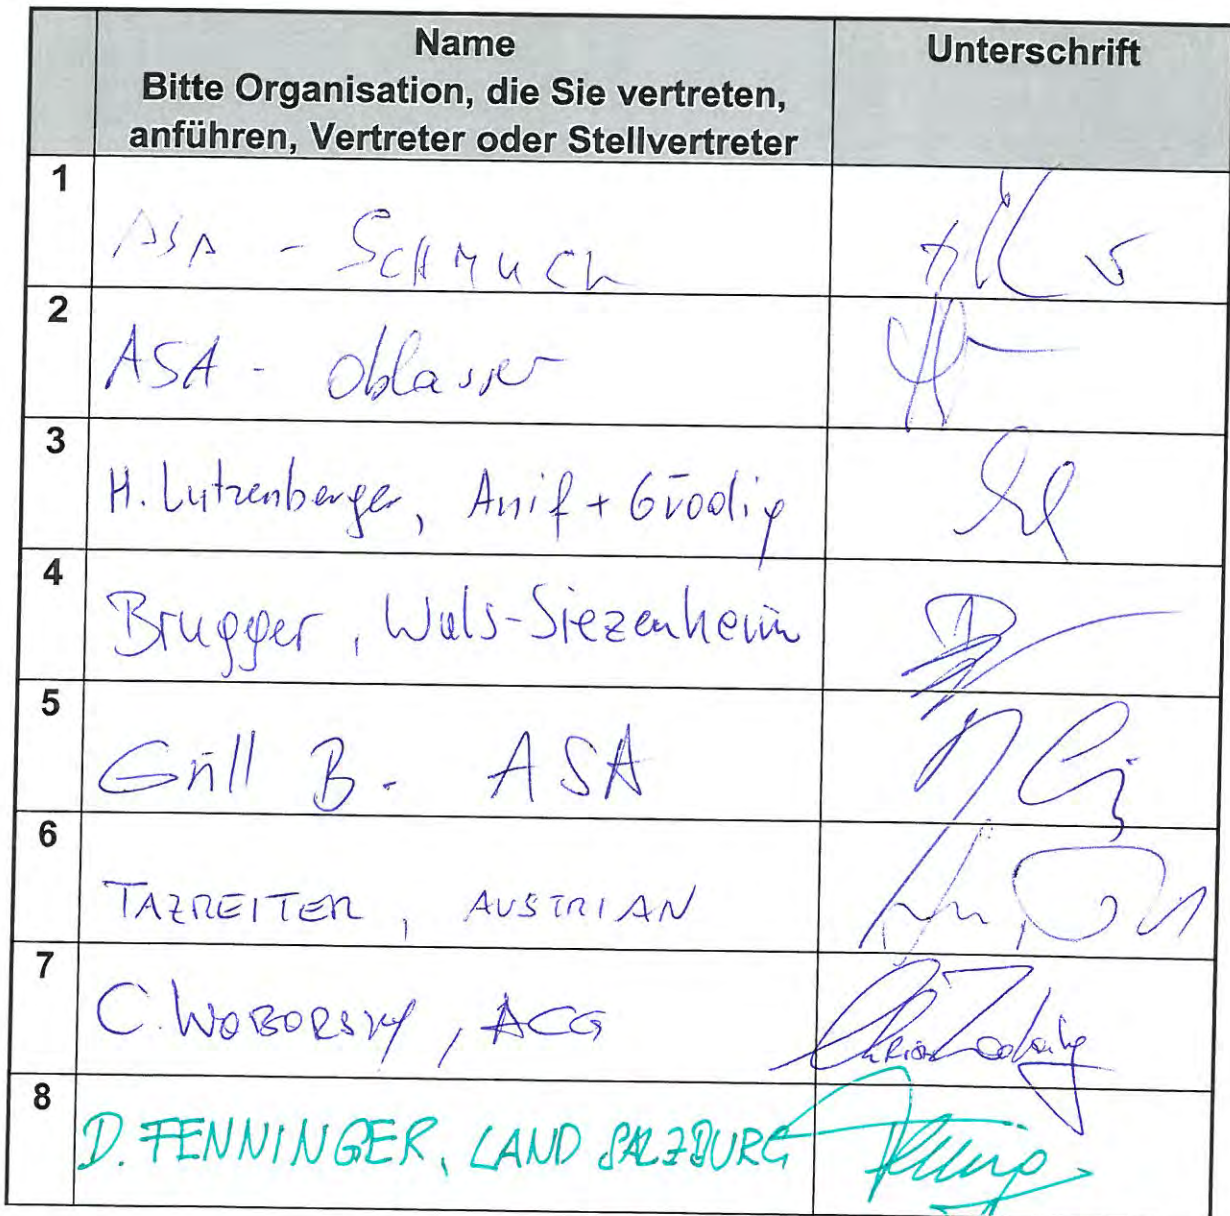 Name
Bitte Organisation, die Sie vertreten,
anführen, Vertreter oder Stellvertreter
Unterschrift
1
ASA - Schmuch
2
ASA - Oblasser
3
H. Lutzenberger, Anif + Grödig
4
Brugger, Wals-Siezenheim
5
Grill B. ASA
6
TAZREITER, AUSTRIAN
7
C. WOBORSKY, ACG
8
D. FENNINGER, LAND SALZBURG